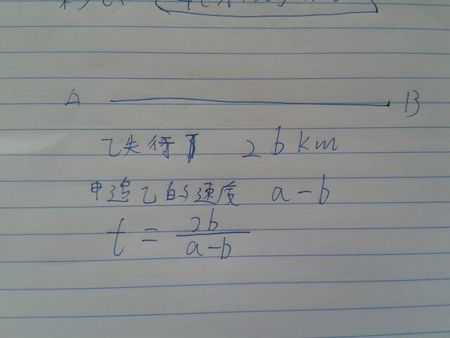 A B
乙先行了 2b km
甲追乙的速度 a-b
t = 2b/a-b